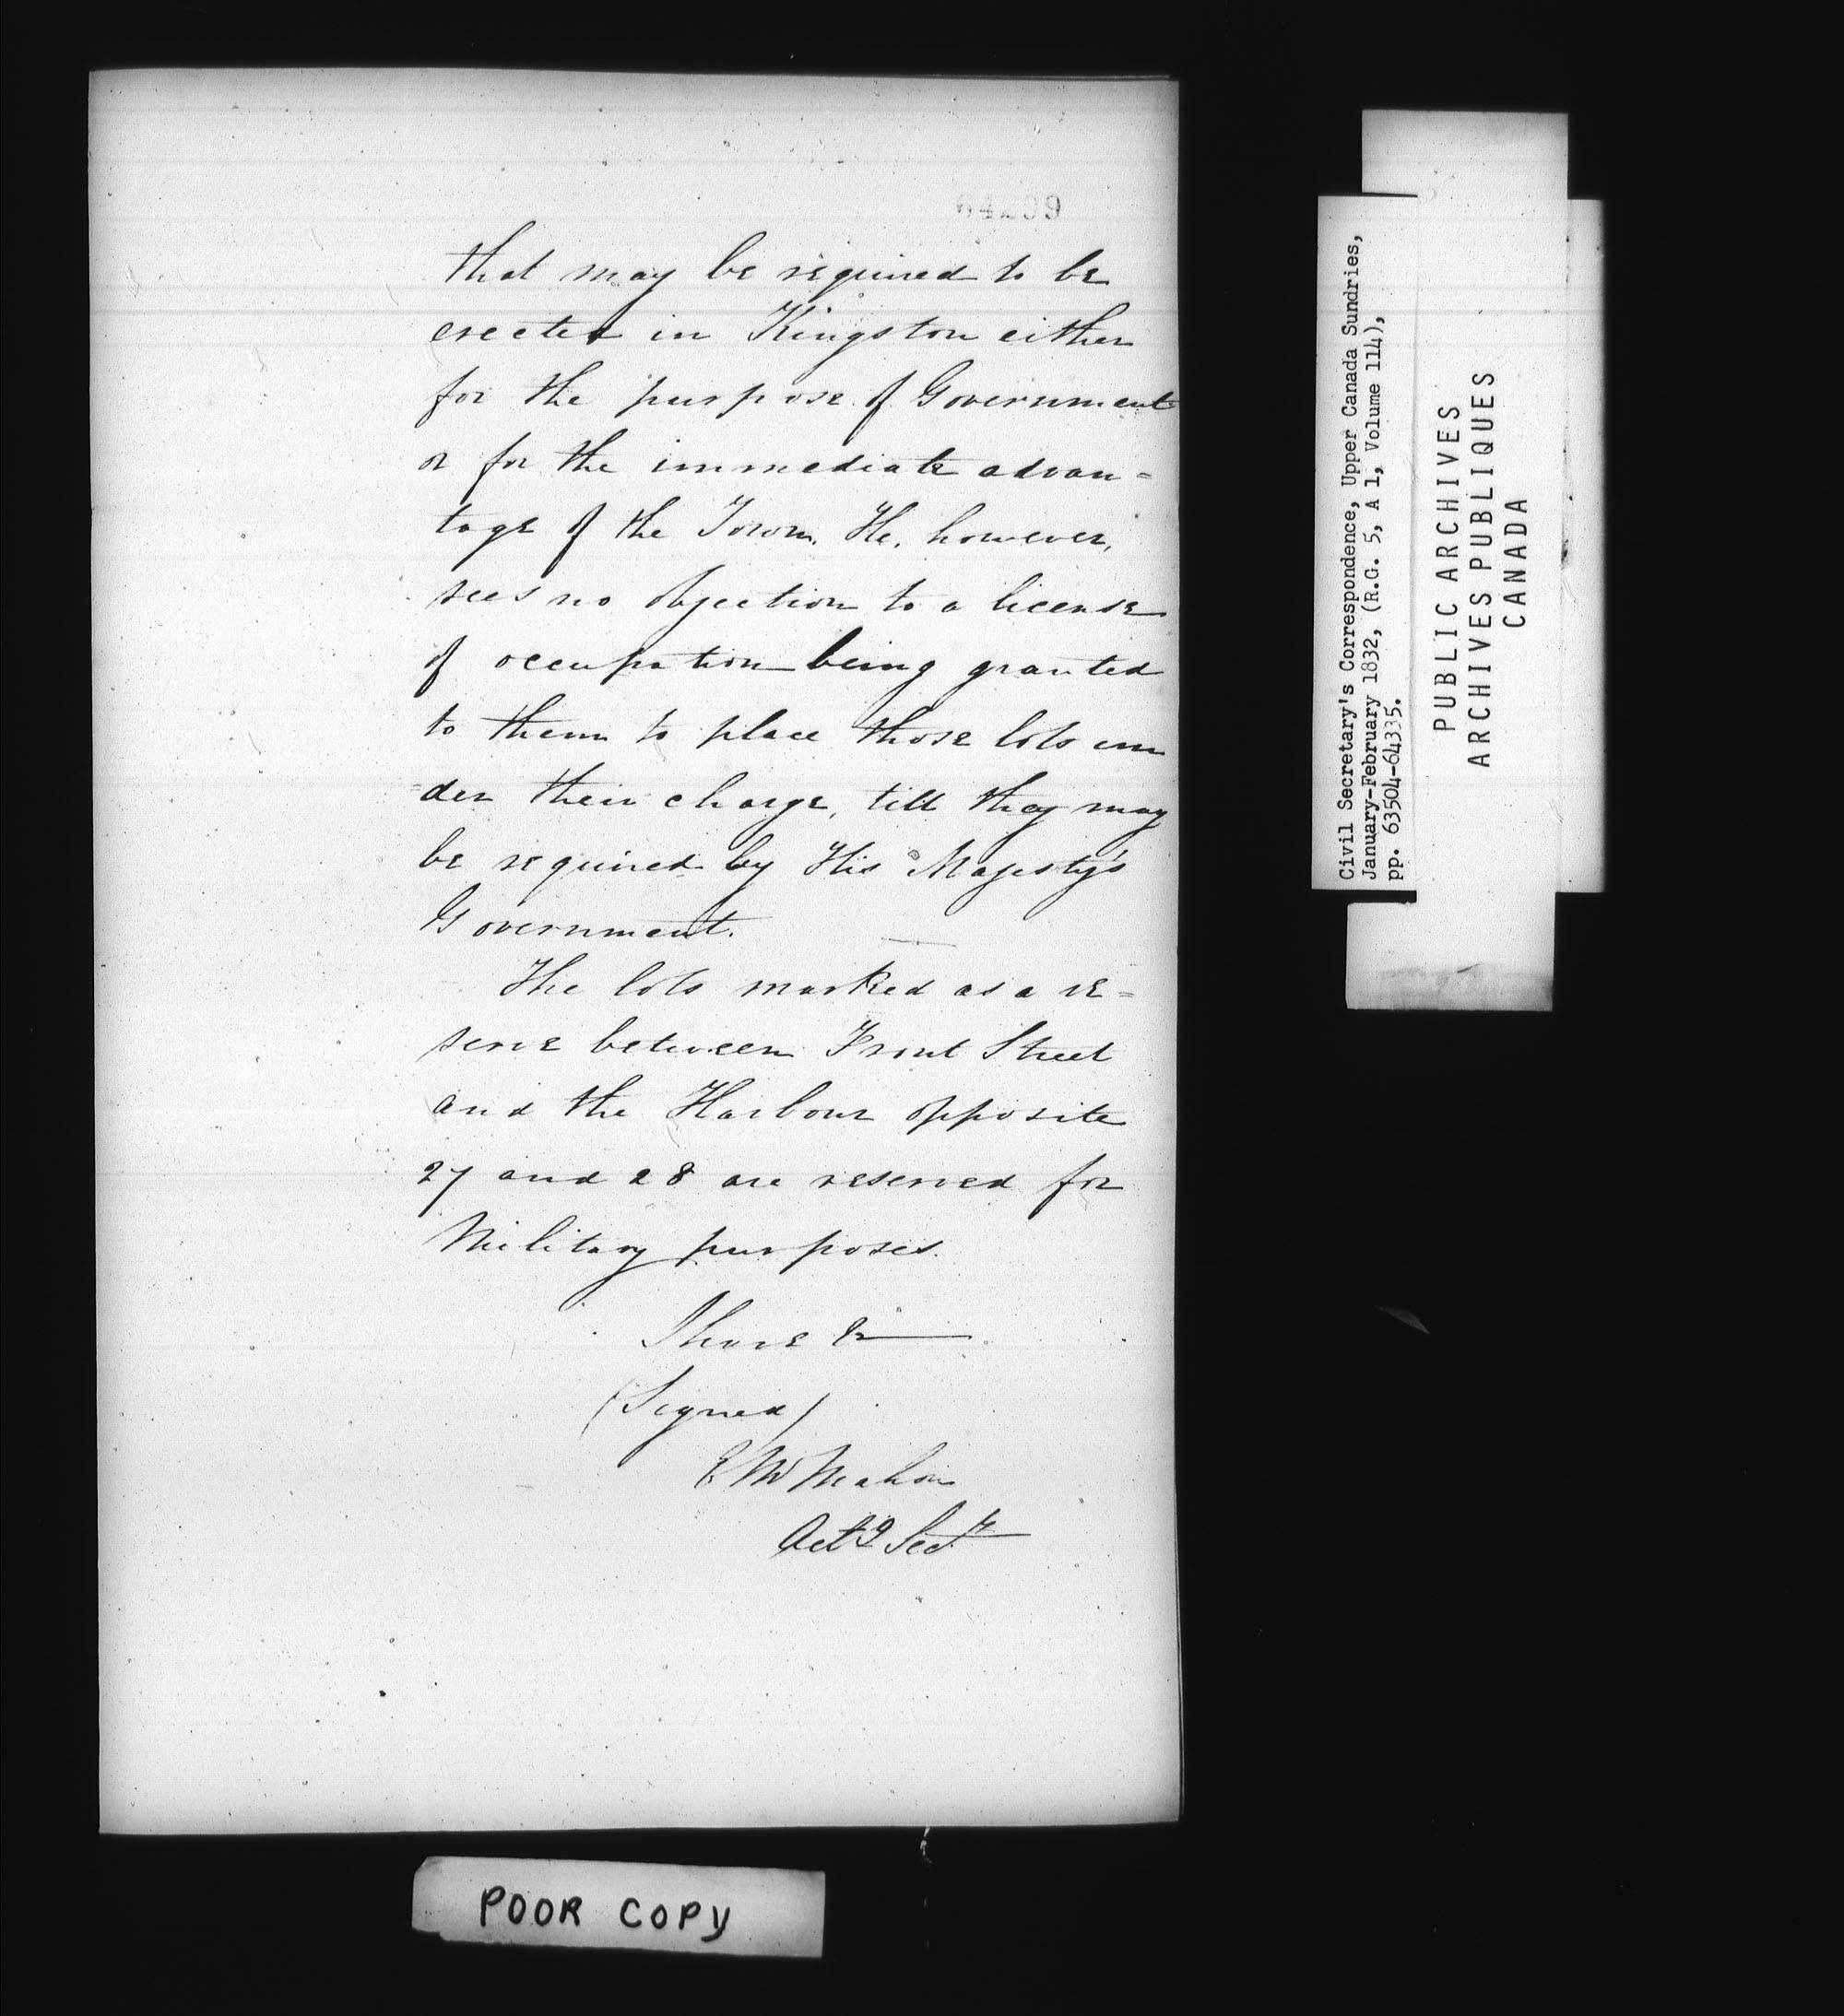 64209
that may be required to be
erected in Kingston either
for the purpose of Government
or for the immediate advan=
tage of the Town. He, however,
sees no objection to a license
of occupation being granted
to them to place those lots un
=der their charge, till they may
be required by His Majesty's
Government.
The lots marked as a re=
serve between Front Street
and the Harbour opposite
27 and 28 are reserved for
Military purposes.
I have &c
(Signed)
E McMahon
Actg Secy
POOR COPY
Civil Secretary's Correspondence, Upper Canada Sundries,
January-February 1832, (R.G. 5, A 1, Volume 114),
pp. 63504-64335.
PUBLIC ARCHIVES
ARCHIVES PUBLIQUES
CANADA